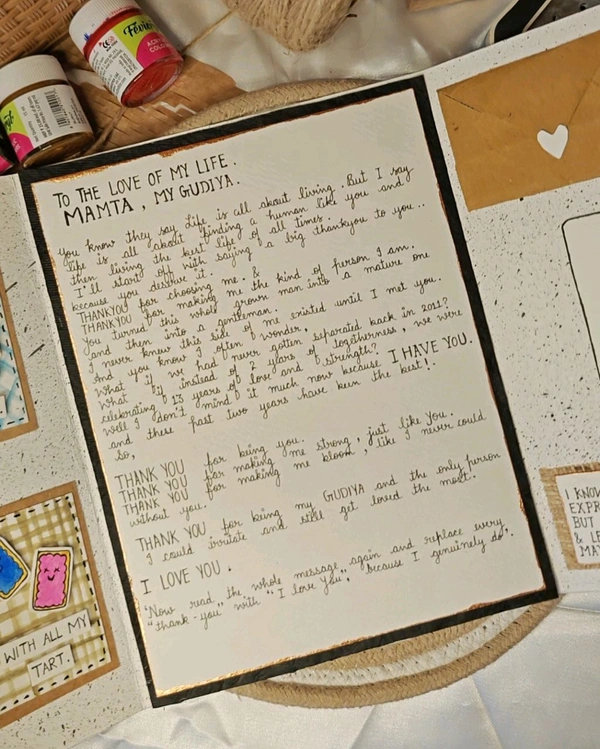 Fevicryl
ACRYLIC
COLOUR
TO THE LOVE OF MY LIFE.
MAMTA, MY GUDIYA.
You know they say life is all about living. But I say
life is all about finding a human like you and
then living the best life of all times.
I'll start off with saying a big thankyou to you..
because you deserve it.
THANKYOU for choosing me. &
THANKYOU for making me the kind of person I am.
You turned this whole grown man into a mature one
and then into a gentleman.
I never knew this side of me existed until I met you.
And you know I often wonder,
What if we had never gotten separated back in 2011?
What if instead of 2 years of togetherness, we were
celebrating 13 years of love and strength?
Well I don't mind it much now because I HAVE YOU.
and these past two years have been the best!.
So,
THANK YOU for being you.
THANK YOU for making me strong, just like You.
THANK YOU for making me bloom, like I never could
without you.
THANK YOU for being my GUDIYA and the only person
I could irritate and still get loved the most.
I LOVE YOU.
"Now read the whole message again and replace every
"thank-you" with "I love you", because I genuinely do".
WITH ALL MY
TART.
I KNOW
EXPR
BUT
& LE
MA